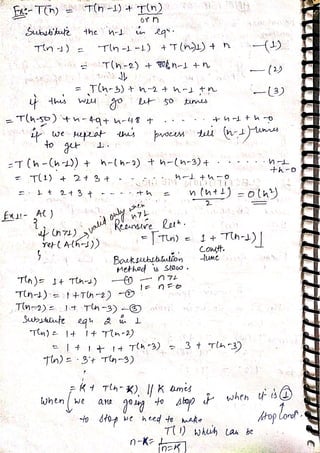 Ex:- T(n) = T(n-1) + T(n)
or n
Substitute the n-1 in eqn.
T(n-1) = T(n-1-1) + T(n-1) + n —(1)
= T(n-2) + n-1 + n —(2)
⇓
= T(n-3) + n-2 + n-1 + n —(3)
if this will go let 50 times
= T(n-50) + n-49 + n-48 + - - - - - - + n-1 + n-0
if we repeat this process till (n-1) times
to get 1.
= T(n-(n-1)) + n-(n-2) + n-(n-3) + - - - - - - n-1
+n-0
= T(1) + 2 + 3 + - - - - - n-1 + n-0
= 1 + 2 + 3 + - - - - + n = n(n+1)/2 = O(n²)
Ex1:- A( )
{
if (n>1) → valid only when n>1
ret (A(n-1))
}
Recursive Reln.
= [T(n) = 1 + T(n-1)]
Constt. time
Backsubstitution
Method is slow.
T(n) = 1 + T(n-1) —① — n>1
1 = n=0
T(n-1) = 1 + T(n-2) —②
T(n-2) = 1 + T(n-3) —③
Substitute eqn 2 in 1
T(n) = 1 + 1 + T(n-2)
= 1 + 1 + 1 + T(n-3) = 3 + T(n-3)
T(n) = 3 + T(n-3)
= K + T(n-K) // K times
when [we are going to stop if when it is ①
to stop we need to make stop Cond.
T(1) which can be
n-K = 1
[n=K]